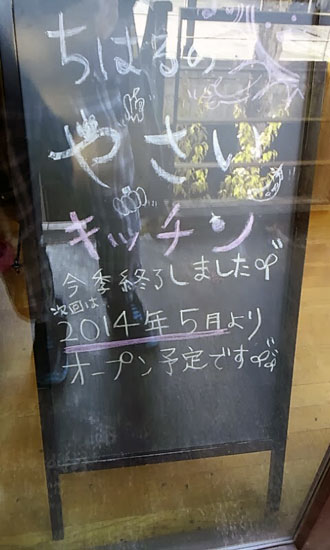 ちはるの
やさい
キッチン
今季終了しました
次回は
2014年5月より
オープン予定です